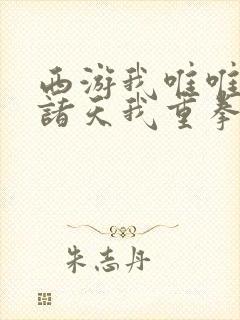 西游我唯唯
諸天我重拳
朱志丹